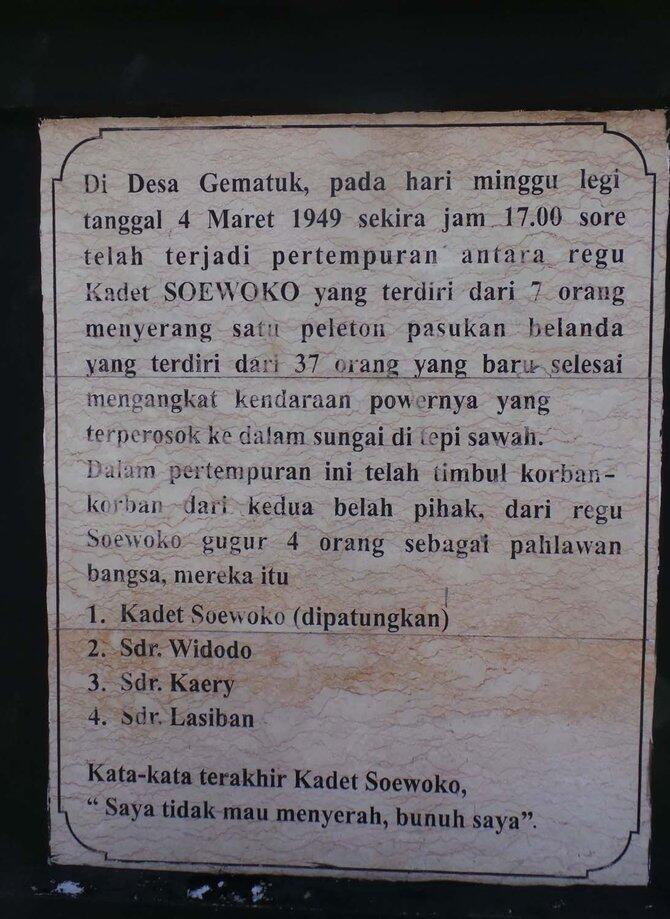 Di Desa Gematuk, pada hari minggu legi
tanggal 4 Maret 1949 sekira jam 17.00 sore
telah terjadi pertempuran antara regu
Kadet SOEWOKO yang terdiri dari 7 orang
menyerang satu peleton pasukan belanda
yang terdiri dari 37 orang yang baru selesai
mengangkat kendaraan powernya yang
terperosok ke dalam sungai di tepi sawah.
Dalam pertempuran ini telah timbul korban-
korban dari kedua belah pihak, dari regu
Soewoko gugur 4 orang sebagai pahlawan
bangsa, mereka itu
1. Kadet Soewoko (dipatungkan)
2. Sdr. Widodo
3. Sdr. Kaery
4. Sdr. Lasiban
Kata-kata terakhir Kadet Soewoko,
“ Saya tidak mau menyerah, bunuh saya”.